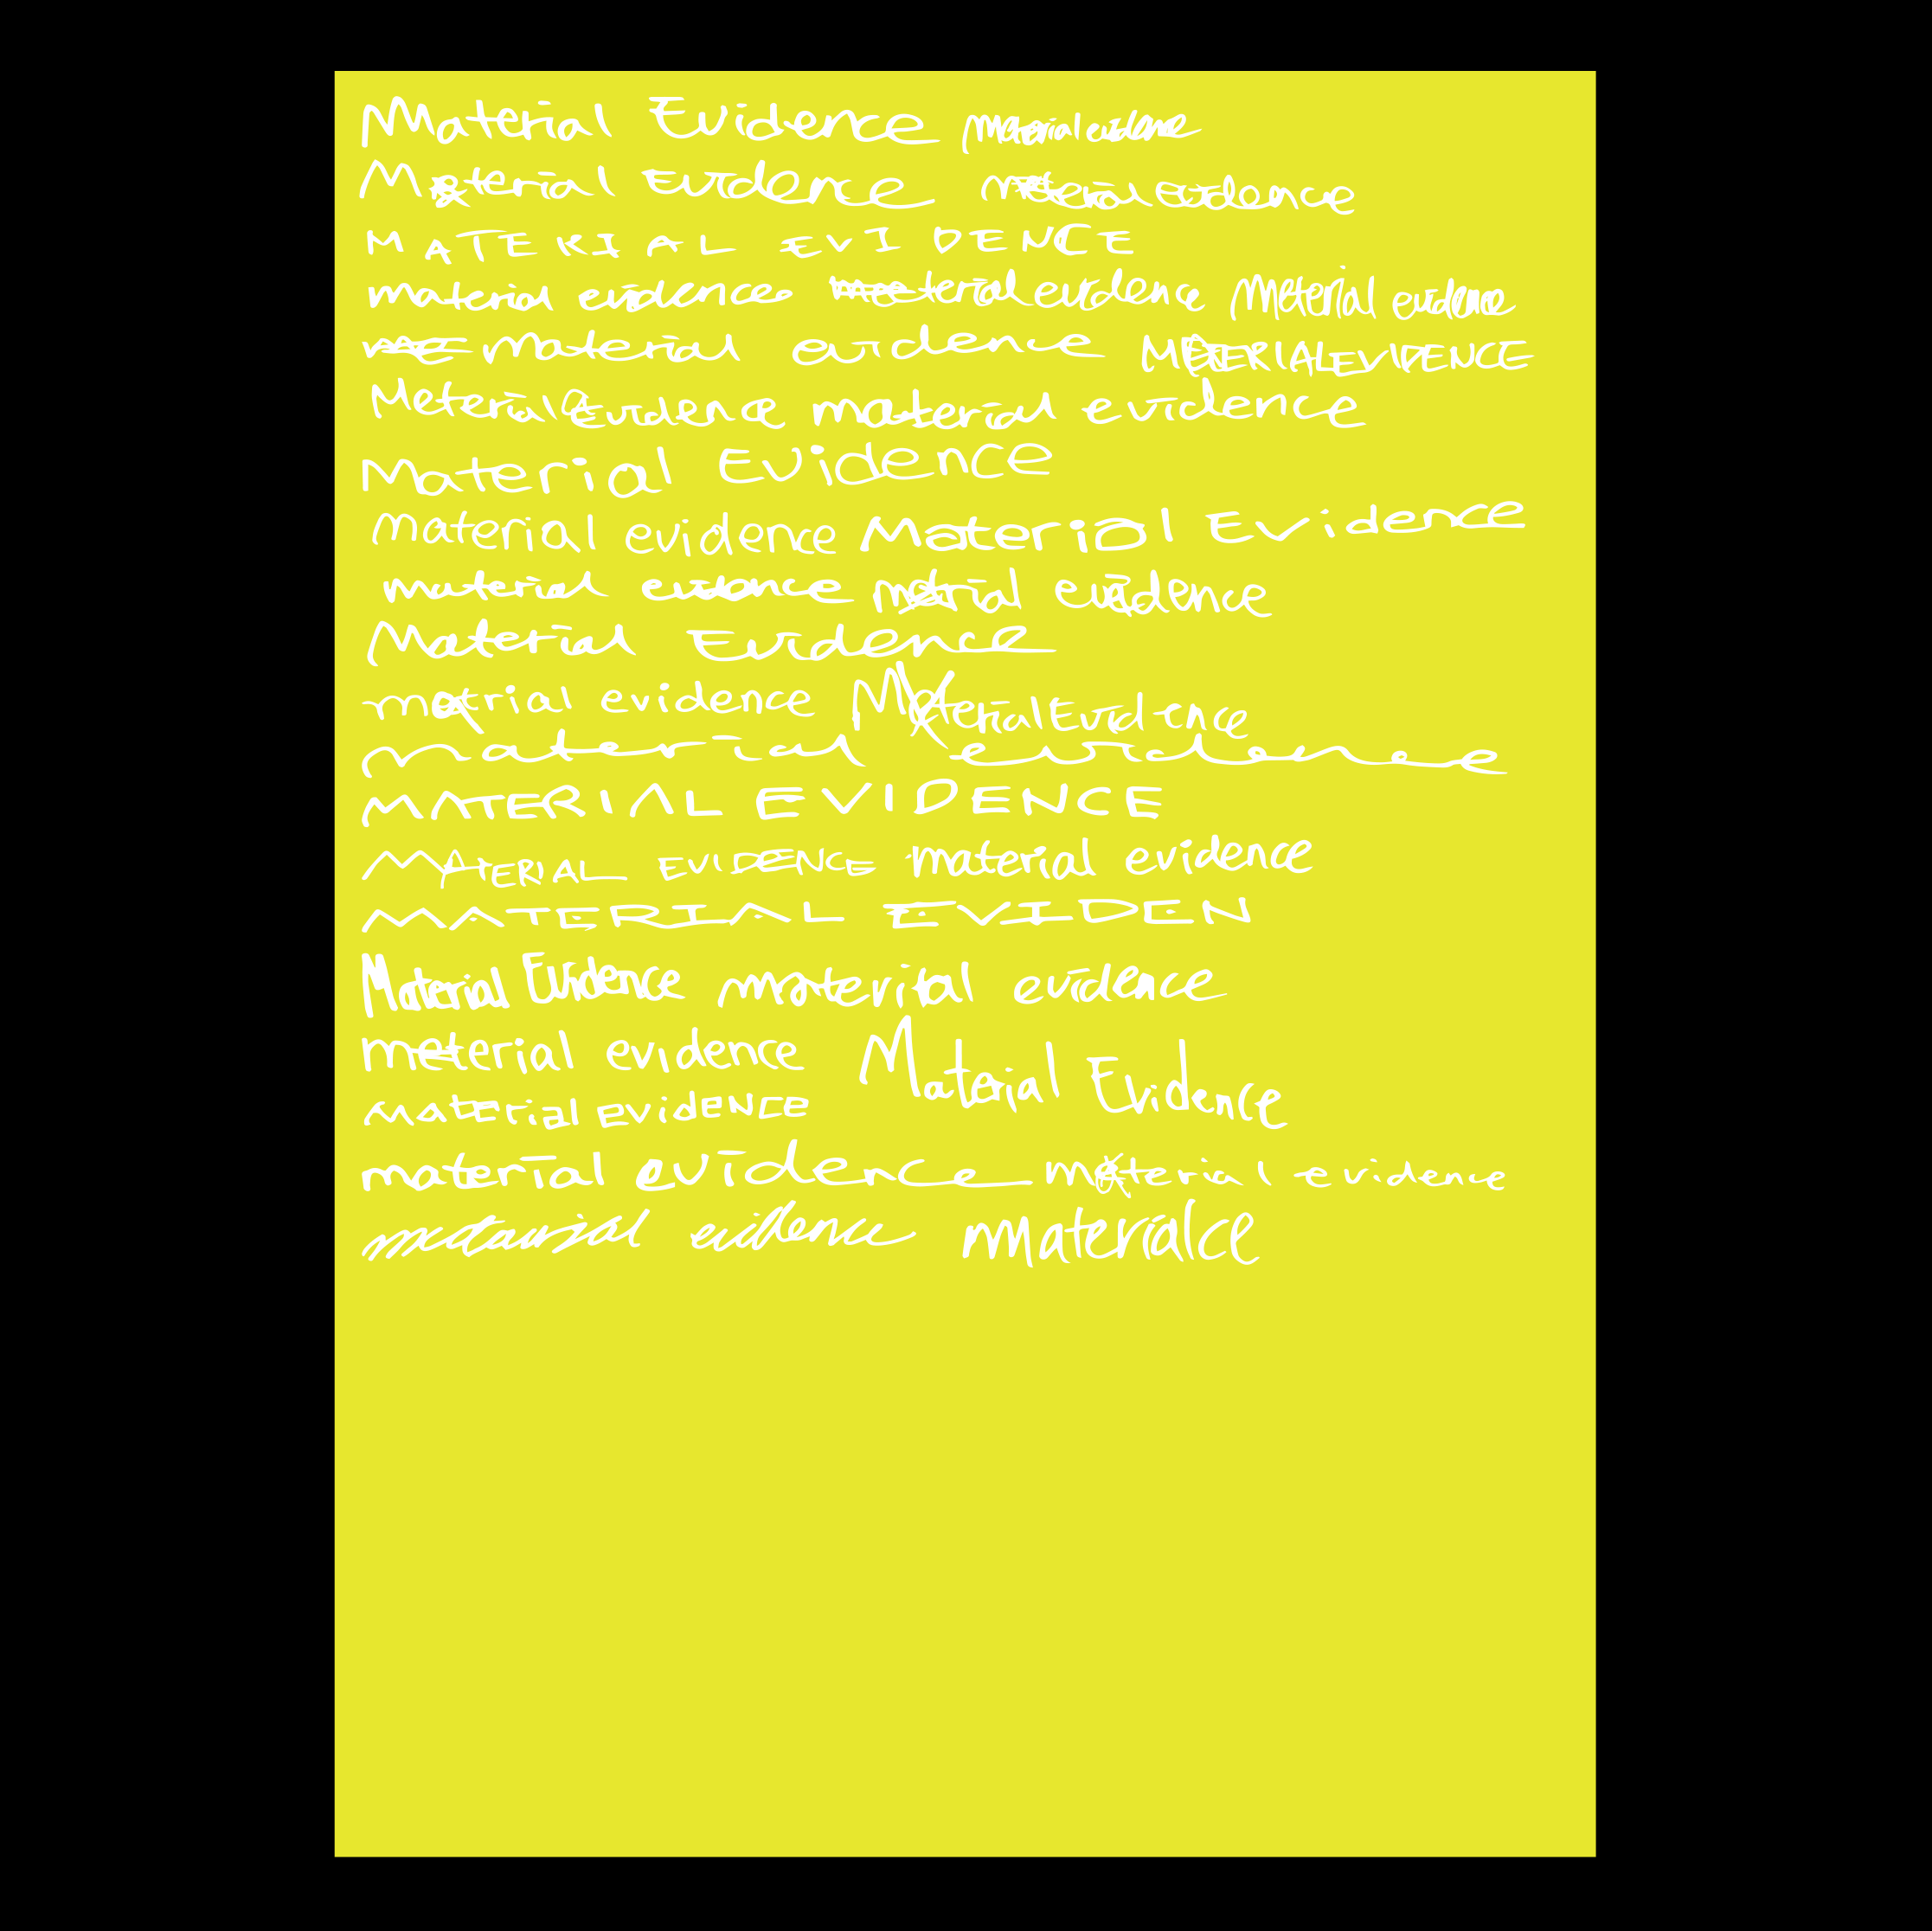 Material Evidence material evidence
Material Evidence material evidence
MATERIAL EVIDENCE
material evidence material evidence Material evidence
material evidence MATERIAL EVIDENCE
Material Evidence material evidence
Material Evidence
material evidence Material Evidence
material evidence material evidence
Material Evidence
material evidence Material Evidence
material evidence
MATERIAL EVIDENCE
MATERIAL EVIDENCE material evidence
MATERIAL EVIDEN
Material Evidence material evidence
material evidence Material Evidence
material EVIDENCE
material evidence material evidence
material evidence